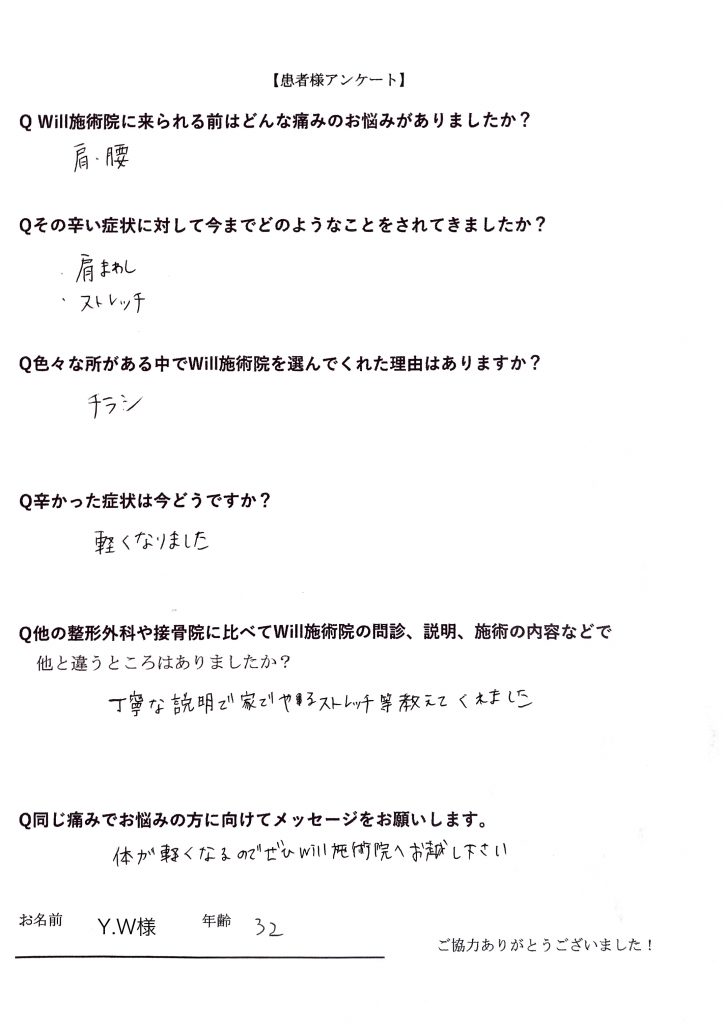 【患者様アンケート】
Q Will施術院に来られる前はどんな痛みのお悩みがありましたか？
肩・腰
Qその辛い症状に対して今までどのようなことをされてきましたか？
・肩まわし
・ストレッチ
Q色々な所がある中でWill施術院を選んでくれた理由はありますか？
チラシ
Q辛かった症状は今どうですか？
軽くなりました
Q他の整形外科や接骨院に比べてWill施術院の問診、説明、施術の内容などで
他と違うところはありましたか？
丁寧な説明で家でやるストレッチ等教えてくれました
Q同じ痛みでお悩みの方に向けてメッセージをお願いします。
体が軽くなるのでぜひWill施術院へお越し下さい
お名前 Y.W様 年齢 32
ご協力ありがとうございました！